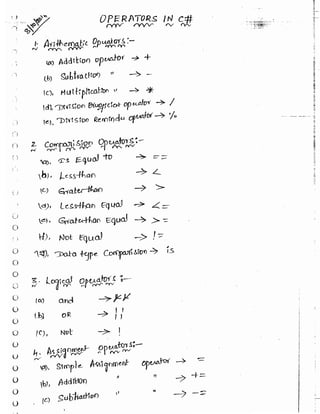 OPERATORS IN C#
1. Arithematic Opuators:-
(a) Addition opuator → +
(b) Subtraction " → -
(c), Multiplication " → *
(d), Division opuator → /
(e), Division Remindu opuator → %
2. Comparision Opuators:-
(a). Is Equal to → ==
(b). Less-than → <
(c) Grater-than → >
(d), Less-than Equal → <=
(e), Grater-than Equal → >=
(f), Not Equal → !=
(g), Data type Comparision → is
3. Logical opuators :-
(a) and → &&
(b) OR → ||
(c), Not → !
4. Assignment opuators:-
(a). Simple Assignment opuator → =
(b), Addition " " → +=
(c) Subtraction " " → -=